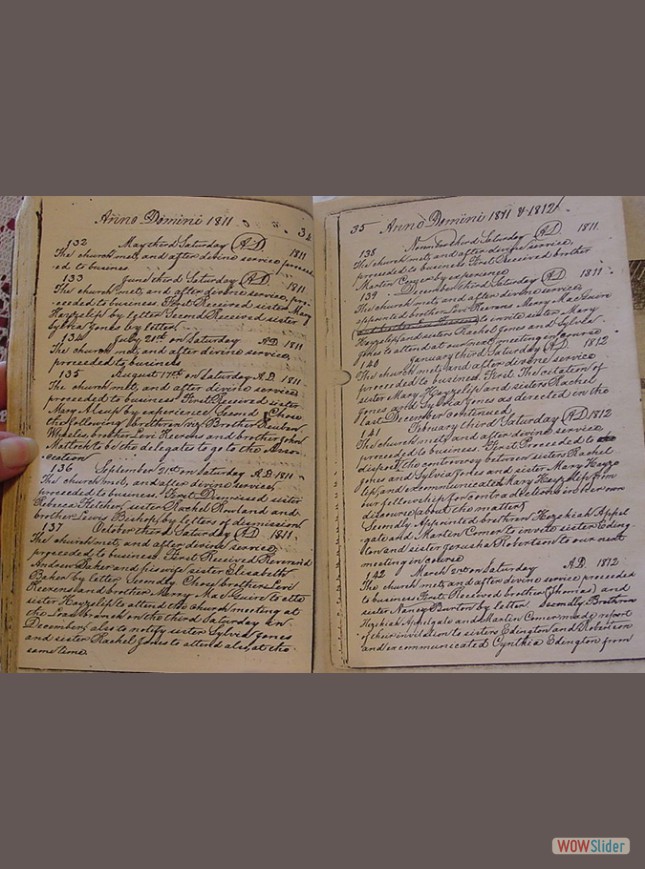 Anno Domini 1811 34
132 May third Saturday (A D) 1811
The church met, and after divine service, proceed-
ed to business
133 June third Saturday (A.D.) 1811.
The church met, and after divine service, pro-
ceeded to business. First Received sister Mary
Hayzelip by letter Second Received sister
Sylvia Jones by letter.
134 July 21st on Saturday A.D. 1811
The church met, and after divine service,
proceeded to business
135 August 17th on Saturday A.D. 1811
The church met, and after divine service
proceeded to business First Received sister
Mary by experience Second Chose
the following brethren viz Brother Reuben
brother Levi Reeves and brother John
to be the delegates to go to the Asso-
ciation
136 September 21st on Saturday A.D. 1811
The church met, and after divine service,
proceeded to business. First Dismissed sister
Rebeca sister Rachel Rowland and
brother Lewis Bishop, by letters of dismission
137 October third Saturday (A D) 1811.
The church met, and after devine service
proceeded to business First Received Reverend
Andrew Baker and his wife sister Elisabeth
Baker by letter, Secondly Chose brother Levi
Reeves and brother Merry Mac Guire to cite
sister Hayzelip to attend the church meeting at
the on the third Saturday in
December, also to notify sister Sylvia Jones
and sister Rachel Jones to attend also, at the
same time
35 Anno Domini 1811 & 1812
138 November third Saturday (A D) 1811.
The church met, and after devine service,
proceeded to business First Received brother
Martin Comer by experience
139 December third Saturday (A D) 1811.
The church met, and after devine service
appointed brother Levi Reeves Merry Mac Guire
to invite sister Mary
Hayzelip, and sister Rachel Jones and Sylvia
Jones to attend at our next meeting in course
140 January third Saturday (A.D) 1812
The church met, and after divine service
proceeded to business. First The citation of
sister Mary Hayzelip and sisters Rachel
Jones and Sylvia Jones as directed in the
last December continued
141 February third Saturday (A D) 1812
The church met, and after devine service
proceeded to business. First Proceeded to
dispose the controversy between sisters Rachel
Jones and Sylvia Jones and sister Mary Hayze
lip, and excommunicated Mary Hayzelip from
our fellowship for contradictions in her own
discourse (about the matter)
Secondly Appointed brethren Hezekiah Appel
gate and Martin Comer to invite sister Eding-
ton and sister Jerusha Robertson to our next
meeting in course
142 March 21st on Saturday A.D. 1812
The church met, and after devine service proceeded
to business. First. Received brother (Thomas) and
sister Nancy Burton by letter Secondly Brethren
Hezekiah Applegate and Martin Comer made report
of their invitation to sisters Edington and Robertson
and excommunicated Cynthia Edington from
WOWSlider